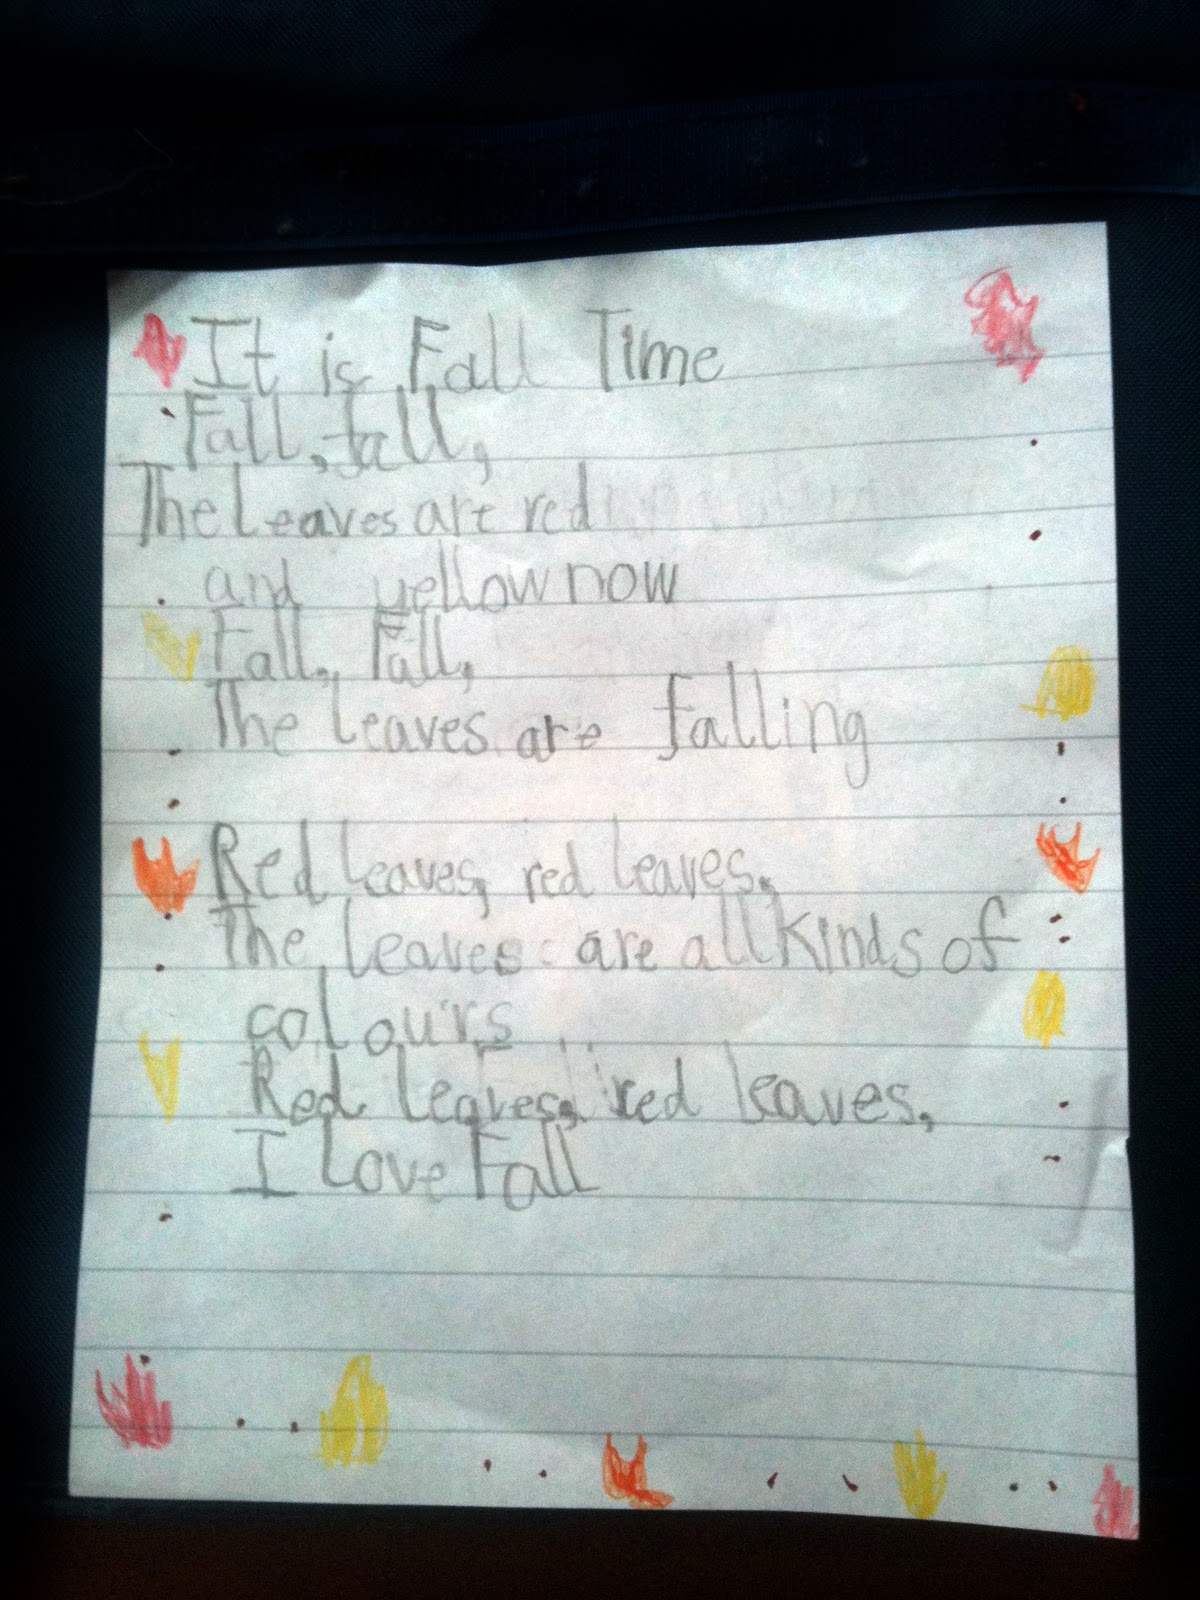 It is Fall Time
Fall, fall,
The leaves are red
and yellow now
Fall, Fall,
The leaves are falling
Red leaves, red leaves,
The leaves are all kinds of
colours
Red leaves, red leaves,
I love Fall